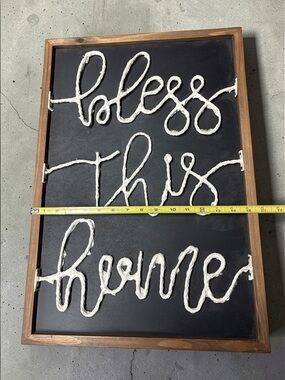 bless
This
home